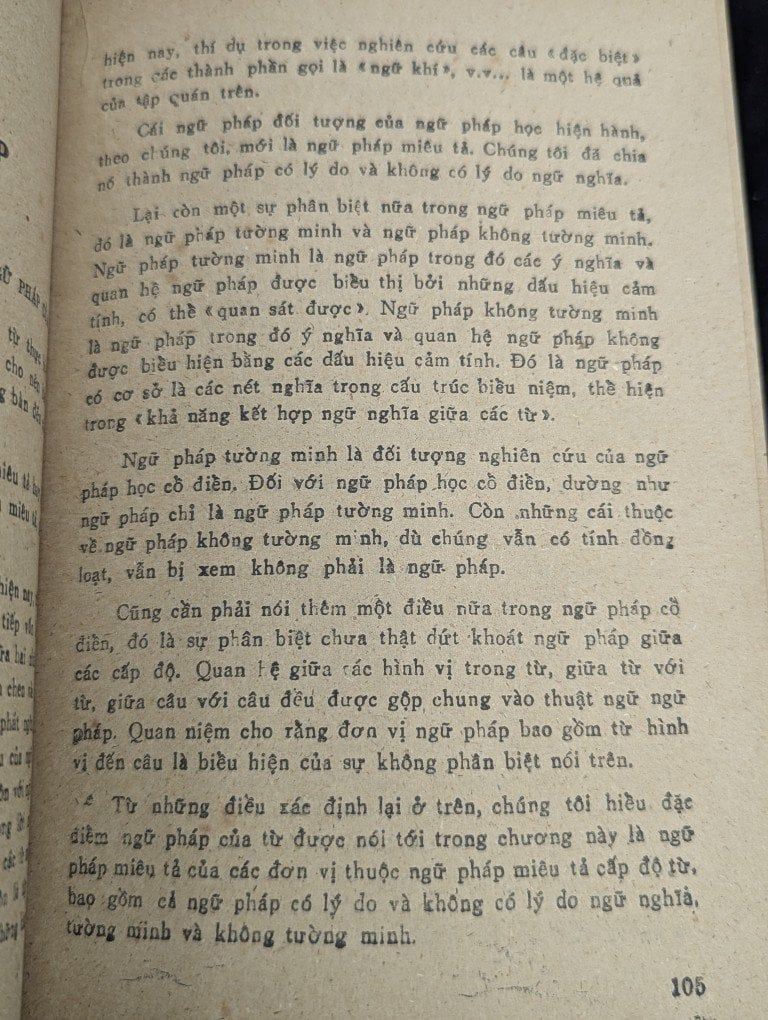 hiện nay, thí dụ trong việc nghiên cứu các câu «đặc biệt»
trong các thành phần gọi là «ngữ khí», v.v... là một hệ quả
của tập quán trên.
Cái ngữ pháp đối tượng của ngữ pháp học hiện hành,
theo chúng tôi, mới là ngữ pháp miêu tả. Chúng tôi đã chia
nó thành ngữ pháp có lý do và không có lý do ngữ nghĩa.
Lại còn một sự phân biệt nữa trong ngữ pháp miêu tả,
đó là ngữ pháp tường minh và ngữ pháp không tường minh.
Ngữ pháp tường minh là ngữ pháp trong đó các ý nghĩa và
quan hệ ngữ pháp được biểu thị bởi những dấu hiệu cảm
tính, có thể «quan sát được». Ngữ pháp không tường minh
là ngữ pháp trong đó ý nghĩa và quan hệ ngữ pháp không
được biểu hiện bằng các dấu hiệu cảm tính. Đó là ngữ pháp
có cơ sở là các nét nghĩa trong cấu trúc biểu niệm, thể hiện
trong «khả năng kết hợp ngữ nghĩa giữa các từ».
Ngữ pháp tường minh là đối tượng nghiên cứu của ngữ
pháp học cổ điển. Đối với ngữ pháp học cổ điển, dường như
ngữ pháp chỉ là ngữ pháp tường minh. Còn những cái thuộc
về ngữ pháp không tường minh, dù chúng vẫn có tính đồng
loạt, vẫn bị xem không phải là ngữ pháp.
Cũng cần phải nói thêm một điều nữa trong ngữ pháp cổ
điển, đó là sự phân biệt chưa thật dứt khoát ngữ pháp giữa
các cấp độ. Quan hệ giữa các hình vị trong từ, giữa từ với
từ, giữa câu với câu đều được gộp chung vào thuật ngữ ngữ
pháp. Quan niệm cho rằng đơn vị ngữ pháp bao gồm từ hình
vị đến câu là biểu hiện của sự không phân biệt nói trên.
Từ những điều xác định lại ở trên, chúng tôi hiểu đặc
điểm ngữ pháp của từ được nói tới trong chương này là ngữ
pháp miêu tả của các đơn vị thuộc ngữ pháp miêu tả cấp độ từ,
bao gồm cả ngữ pháp có lý do và không có lý do ngữ nghĩa,
tường minh và không tường minh.
105